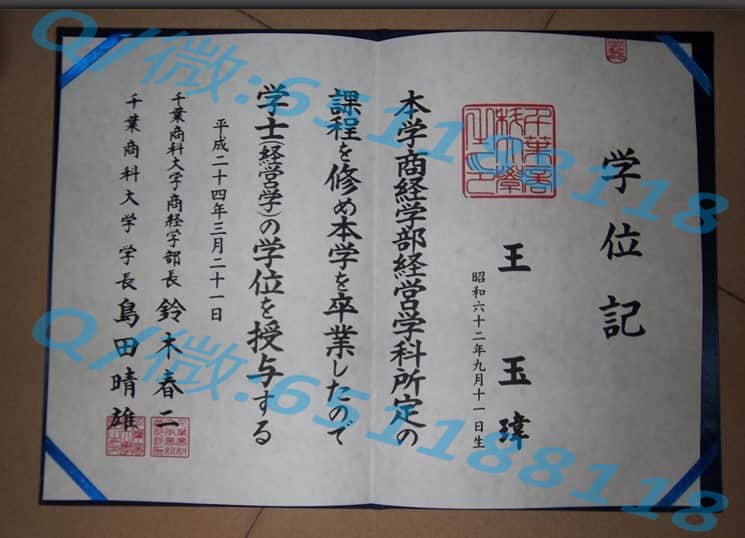 学位記
王 玉瑋
昭和六十二年九月十一日生
本学商経学部経営学科所定の
課程を修め本学を卒業したので
学士(経営学)の学位を授与する
平成二十四年三月二十一日
千葉商科大学商経学部長 鈴木春二
千葉商科大学 学長 島田晴雄
Q/微:651188118
Q/微:651188118